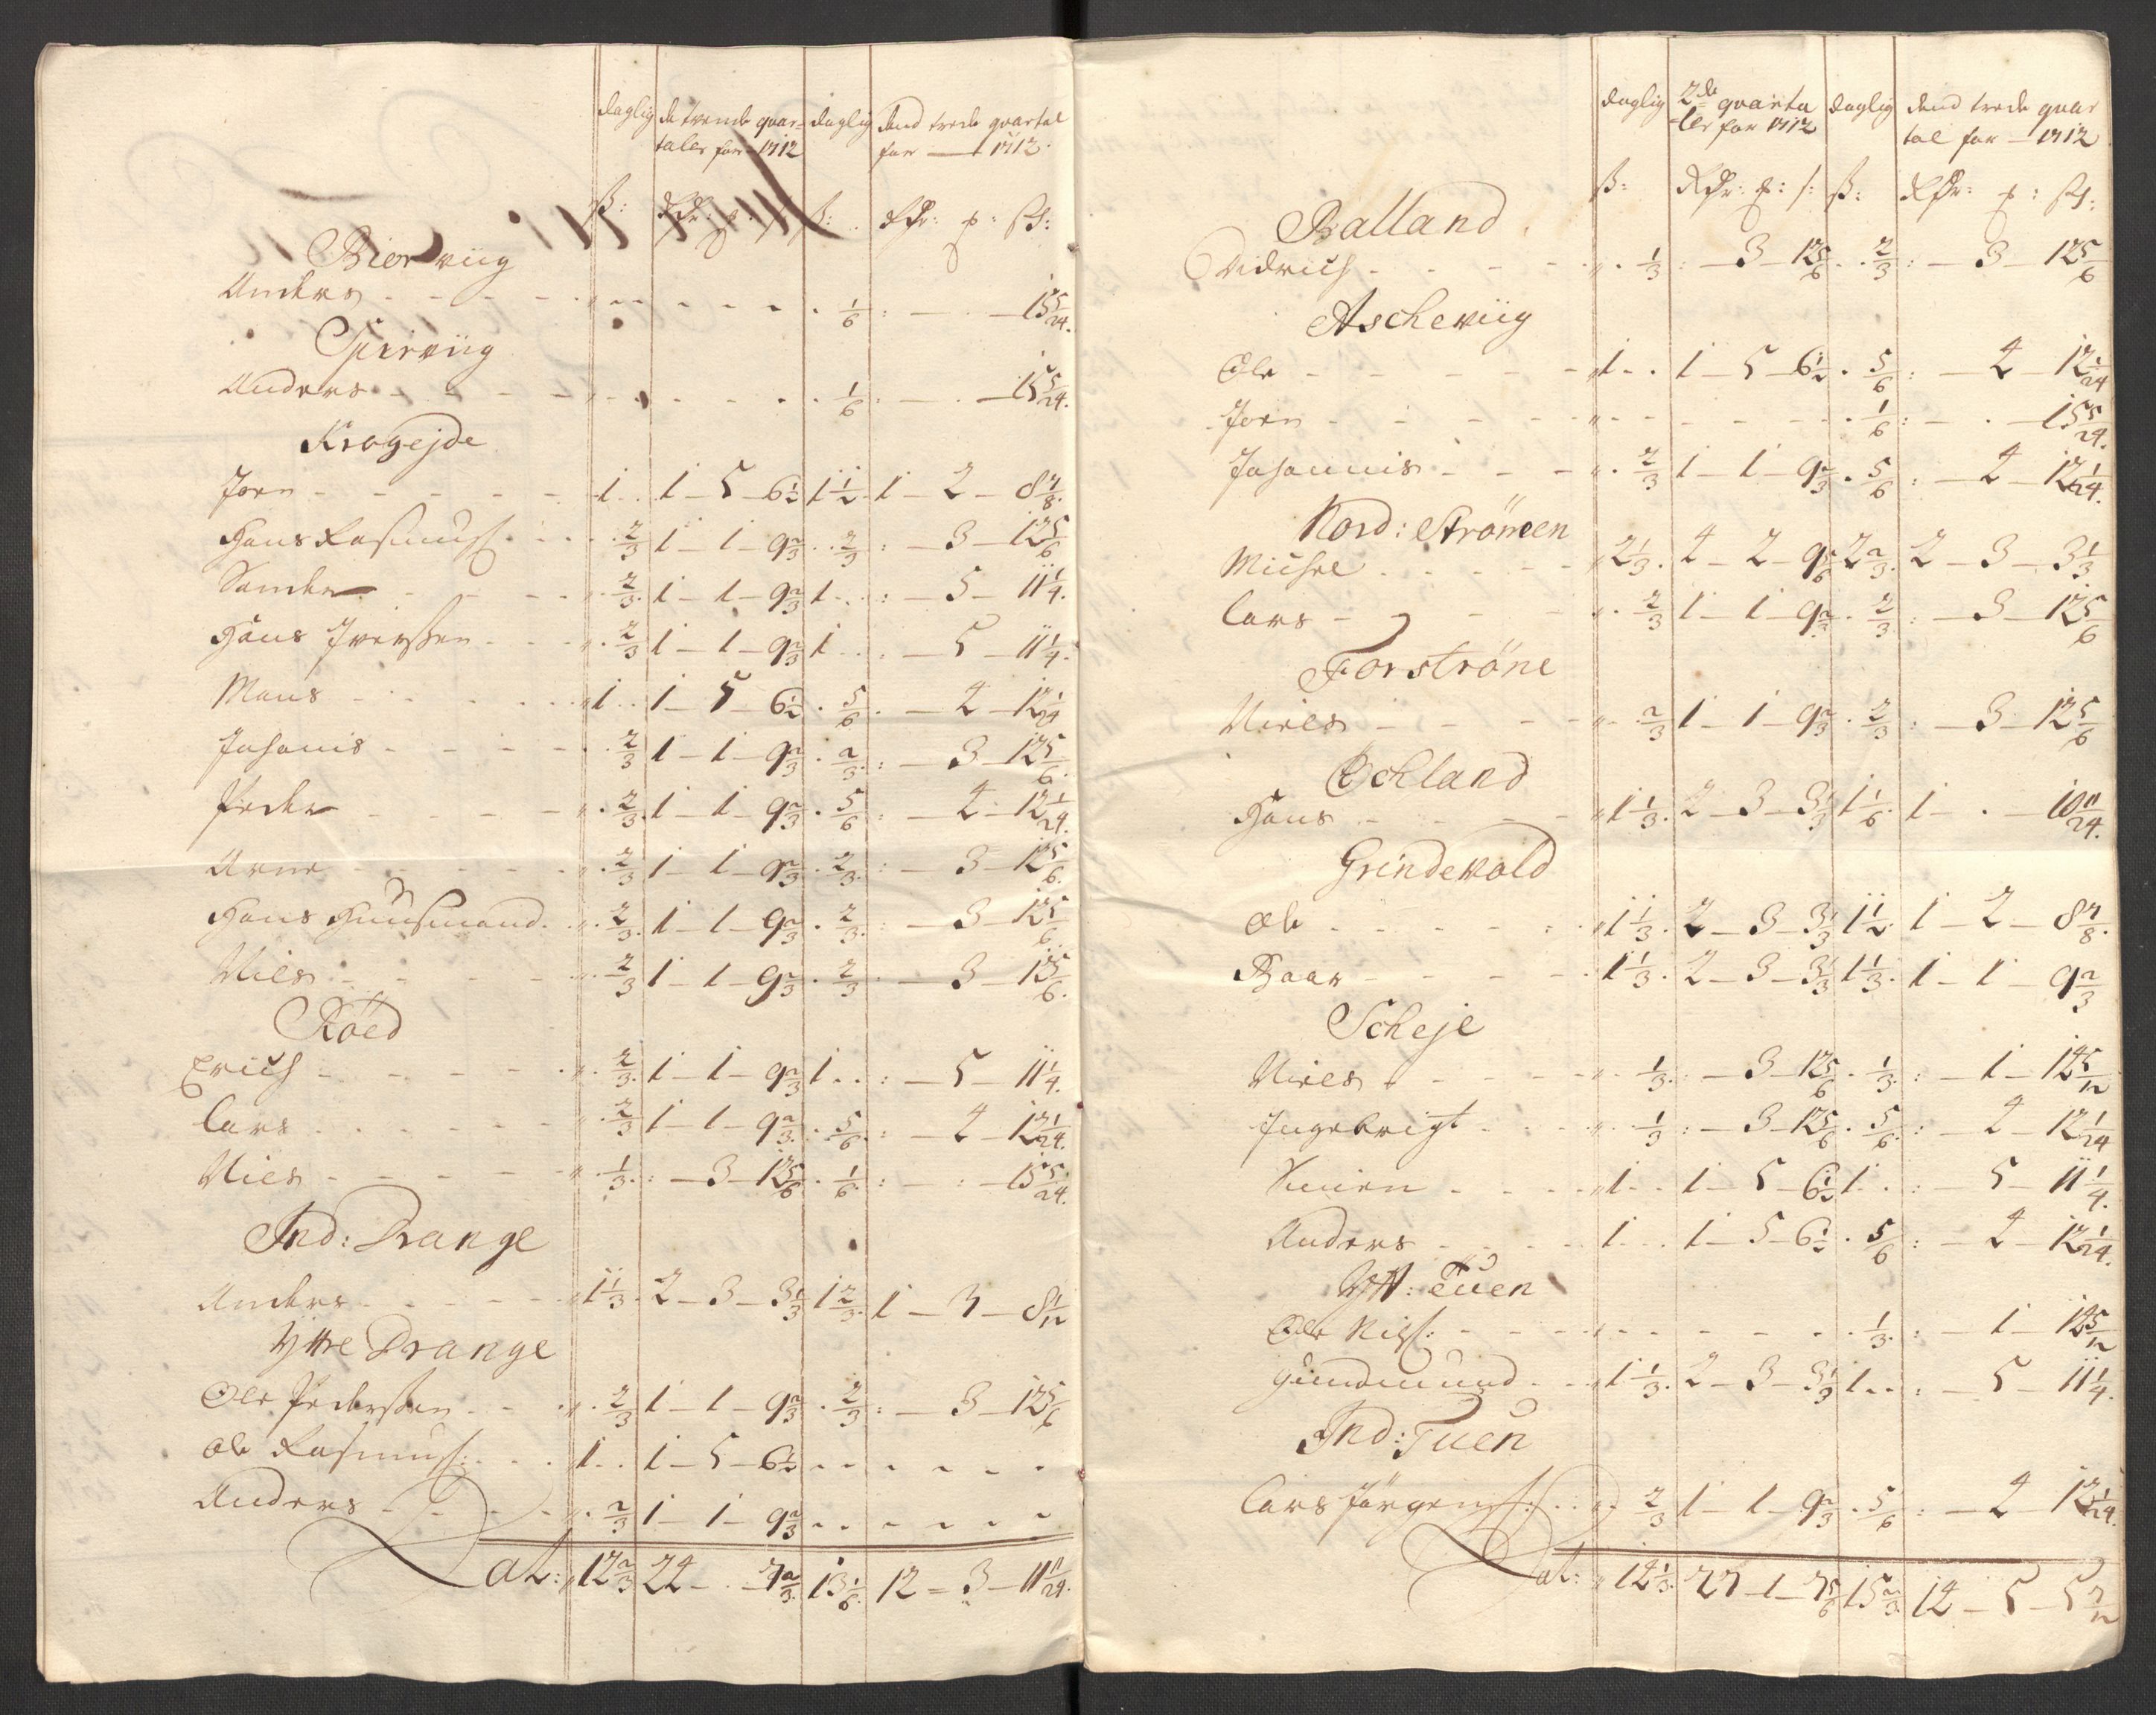 daglig de tvende quar= daglig dend trede quartal
taler for 1712 for — 1712
ß: Rdr: : ß: Rdr: : ß:
Bierviig
Anders - - - - - - - 1/6 : — . — 15 5/24.
Spirviig
Anders - - - - - - 1/6 : — . — 15 5/24.
Krogejde
Jørn - - - - 1 . . 1 — 5 — 6 1/2 1 1/2 1 — 2 — 8 7/8.
Hans Rasmuss: - - 2/3 1 — 1 — 9 2/3 . 2/3 : — 3 — 12 5/6
Sander - - - 2/3. 1 — 1 — 9 2/3 1 . . : — 5 — 11 1/4.
Hans Iverssen - - 2/3 1 — 1 — 9 2/3 1 . . : — 5 — 11 1/4.
Mons - - - 1 . . 1 — 5 — 6 1/2 . 5/6 . — 4 — 12 1/24
Johanis - - - 2/3 1 — 1 — 9 2/3 . 2/3. : — 3 — 12 5/6.
Peder - - - 2/3. 1 — 1 — 9 2/3 . 5/6 : — 4 — 12 1/24.
Arne - - - 2/3 1 — 1 — 9 2/3 . 2/3. : — 3 — 12 5/6.
Hans Huusmand. 2/3. 1 — 1 — 9 2/3 . 2/3. : — 3 — 12 5/6
Niels - - - 2/3 1 — 1 — 9 2/3 . 2/3 : — 3 — 12 5/6.
Röed
Erich - - - 2/3. 1 — 1 — 9 2/3 1 . . : — 5 — 11 1/4.
Lars - - - 2/3 1 — 1 — 9 2/3. . 5/6. : — 4 — 12 1/24.
Niels - - - 1/3. : — 3 — 12 5/6 . 1/6. : — : — 15 5/24.
Ind: Drange
Anders - - - 1 1/3. 2 — 3 — 3 1/3 1 2/3. 1 — 3 — 8 1/12
Ytre Drange
Ole Pederssen - - 2/3 1 — 1 — 9 2/3 . 2/3 : — 3 — 12 5/6
Ole Rasmuss: - - 1 . . 1 — 5 — 6 1/2 - - - - - -
Anders - - - 2/3 1 — 1 — 9 2/3 - - - - - -
Lat: 12 2/3 24 — . — 7 2/3. 13 1/6. 12 = 3 — 11 11/24.
daglig 2de quarta daglig dend trede quar
ler for 1712 tal for — 1712
ß: Rdr: : ß: ß: Rdr: : ß:
Balland
Didrich - - - 1/3 : — 3 — 12 5/6 . 2/3 : — 3 — 12 5/6
Ascheviig
Ole - - - 1 . . 1 — 5 — 6 1/2 . 5/6 : — 4 — 12 1/24
Jørn - - - - - - - 1/6 : — . — 15 5/24.
Johannis - - - 2/3 1 — 1 — 9 2/3 . 5/6 : — 4 — 12 1/24.
Nord: Strömen
Michel - - - 2 1/3. 4 — 2 — 9 5/6 2 2/3. 2 — 3 — 3 1/3
Lars - - - 2/3 1 — 1 — 9 2/3 . 2/3 : — 3 — 12 5/6
Forströne
Niels - - - 2/3 1 — 1 — 9 2/3 . 2/3 : — 3 — 12 5/6
Echland
Hans - - - 1 1/3. 2 — 3 — 3 1/3 1 1/6. 1 — . — 10 11/24.
Grindevold
Ole - - - 1 1/3. 2 — 3 — 3 1/3 1 1/2 1 — 2 — 8 7/8.
Baar - - - 1 1/3. 2 — 3 — 3 1/3 1 1/3. 1 — 1 — 9 2/3
Scheje
Niels - - - 1/3. : — 3 — 12 5/6 . 1/3. : — 1 — 14 5/12
Ingebrigt - - - 1/3 : — 3 — 12 5/6 . 5/6. : — 4 — 12 1/24
Simen - - - 1 . . 1 — 5 — 6 1/2 1 . . : — 5 — 11 1/4.
Anders - - - 1 . . 1 — 5 — 6 1/2 . 5/6 : — 4 — 12 1/24.
Ytt: Tuen
Ole Nilss: - - - - - - - 1/3. : — 1 — 14 5/12
Gundmund - - 1 1/3. 2 — 3 — 3 1/3 1 . . : — 5 — 11 1/4.
Ind: Tuen
Lars Jørgenss: . . 2/3 1 — 1 — 9 2/3 . 5/6 : — 4 — 12 1/24.
Lat: 14 1/3. 27 — 1 — 7 5/6 15 2/3. 14 — 5 — 5 7/12